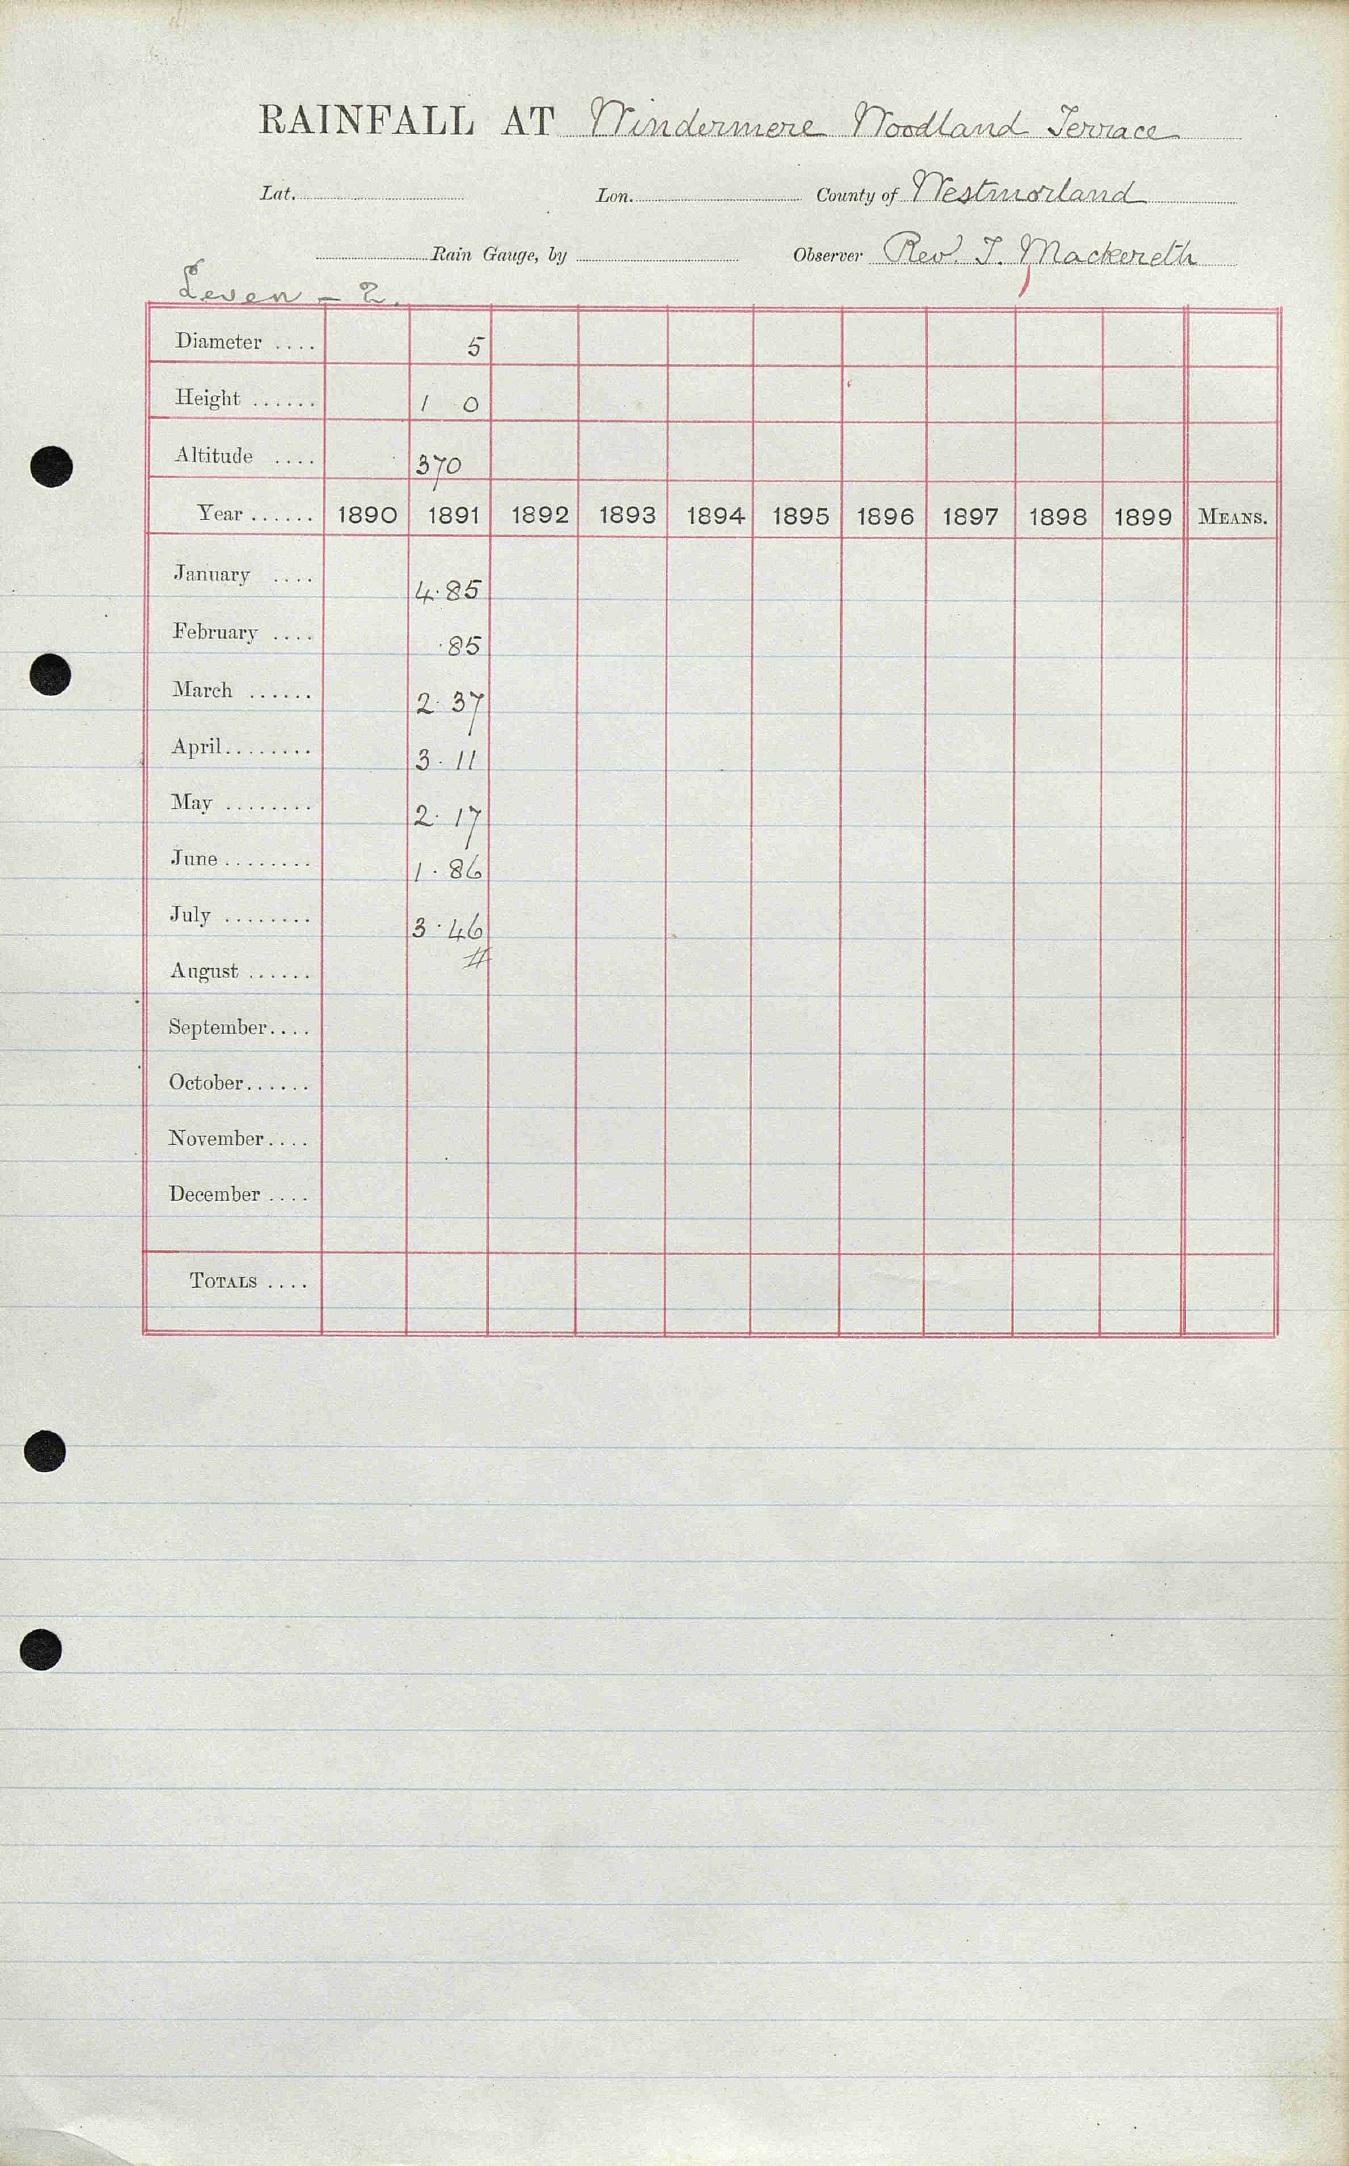 RAINFALL AT Windermere Woodland Terrace
Lat. Lon. County of Westmorland
Rain Gauge, by Observer Rev. T. Mackereth
Leven - 2.
Diameter .... 5
Height ...... 1 0
Altitude .... 370
Year ...... 1890 1891 1892 1893 1894 1895 1896 1897 1898 1899 MEANS.
January .... 4.85
February .... .85
March ...... 2.37
April........ 3.11
May ........ 2.17
June ........ 1.86
July ........ 3.46
#
August ......
September....
October......
November....
December ....
TOTALS ....